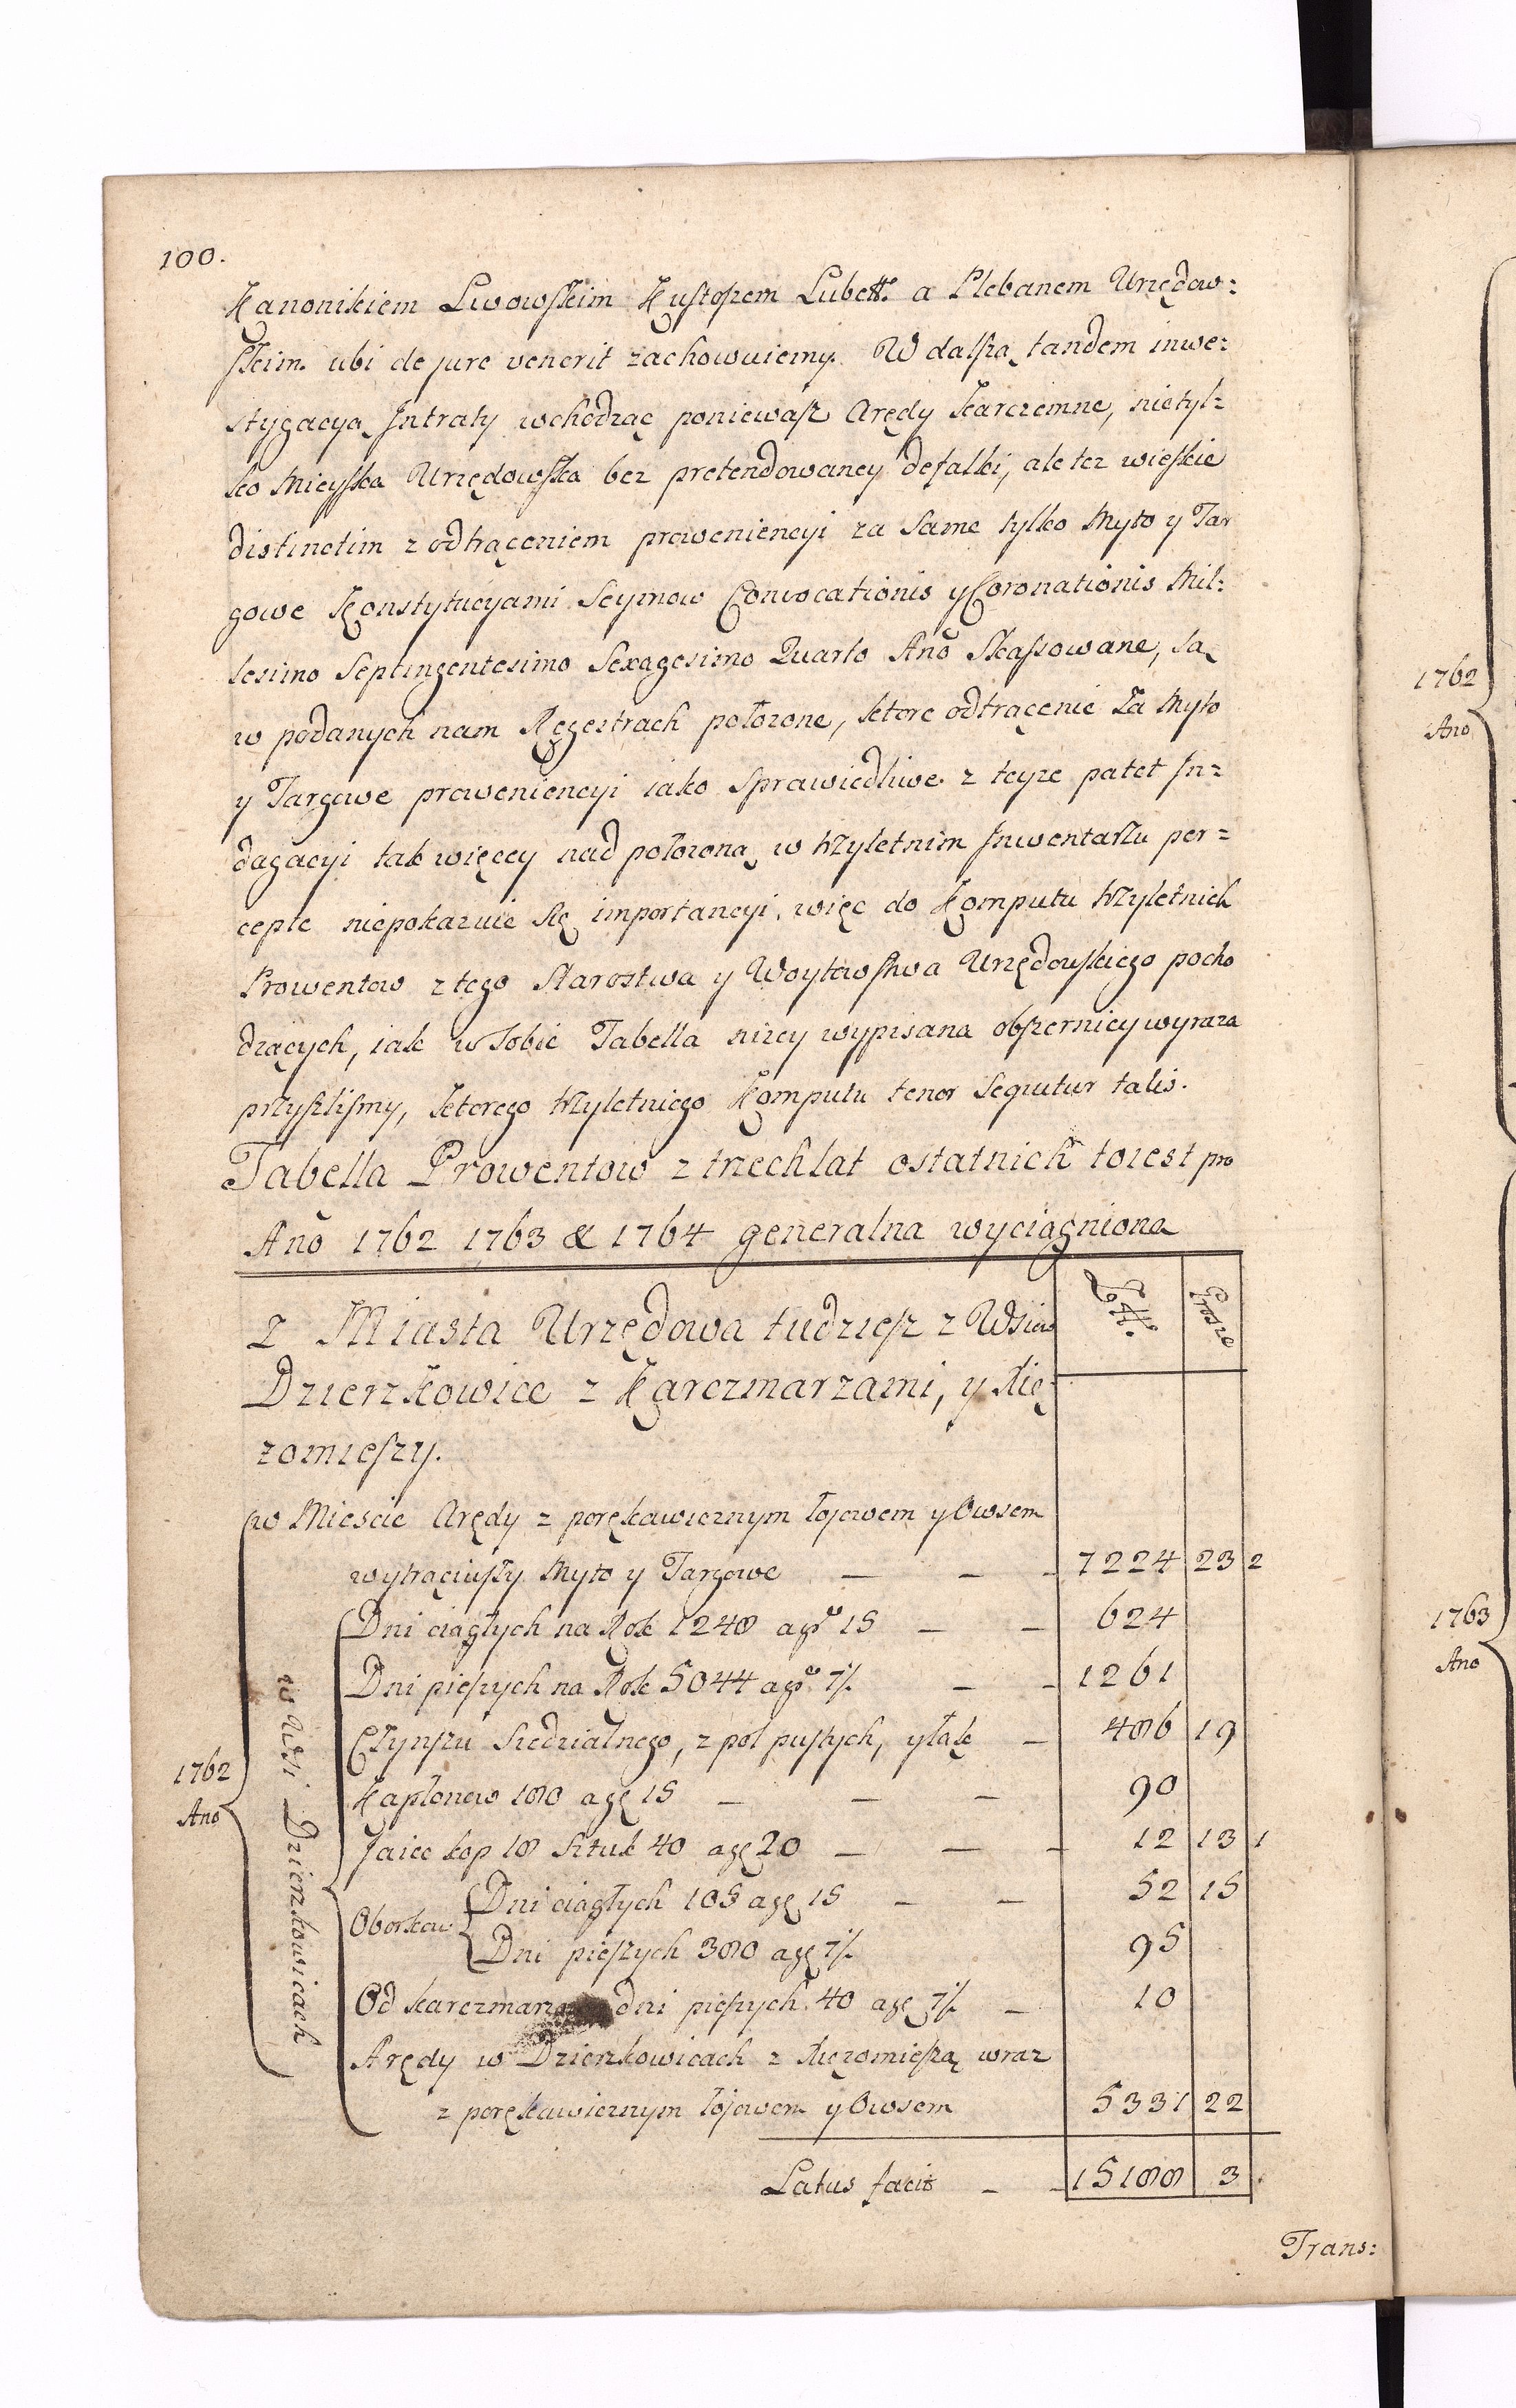 100.
Kanonikiem Lwowskim Kustoszem Lubett. a Plebanem Urzędow:
skim. ubi de jure venerit zachowuiemy. W dalszą tandem inwe:
stygacyą Intraty wchodząc poniewasz Arędy karczemne, nietyl:
ko Mieyska Urzędowska bez pretendowaney defalki, ale tez wieskie
distinctim z odtrąceniem prowenienciji za same tylko Myto y Tar
gowe Konstytucyami Seymow Convocationis y Coronationis Mil:
lesimo Septingentesimo Sexagesimo Quarto Año Skassowane, są
w podanych nam Regestrach położone, ktore odtrącenie za Myto
y Targowe prowenienciji iako sprawiedliwe z teyze patet In:
dagacyi tak więcey nad położoną w trzyletnim Inwentarzu per:
cepte niepokazuie się importancyi, więc do Komputu trzyletnich
Prowentow z tego Starostwa y Woytowstwa Urzędowskiego pocho
dzących, iak w sobie Tabella nizey wypisana obszerniey wyraza
przyszlismy, ktorego trzyletniego Komputu tenor sequitur talis.
Tabella Prowentow z trzech lat ostatnich toiest pro
Año 1762 1763 & 1764 generalna wyciągniona
Z Miasta Urzędowa tudziesz z Wsiow Złtt. Grosze
Dzierzkowice z Karczmarzami, y Xię:
zomieszy.
w Miescie Arędy z porękawicznym łojowem y Owsem
wytrąciwszy Myto y Targowe — — — 7224 23 2
Dni ciągłych na Rok 1248 a gr 15 — — 624
Dni pieszych na Rok 5044 a gr 7½ — — 1261
Czynszu siedzialnego, z pol pustych, y łąk — 486 19
1762 Año
w Wsi Dzierzkowicach
Kapłonow 180 a gr 15 — — — 90
Jaiec kop 18 sztuk 40 a gr 20 — — — 12 13 1
Oborkow Dni ciągłych 105 a gr 15 — — 52 15
Dni pieszych 380 a gr 7½ 95
Od karczmarzow dni pieszych 40 a gr 7½ — 10
Arędy w Dzierzkowicach z Xięzomieszą wraz
z porękawicznym łojowem y Owsem 5331 22
Latus facit — — 15188 3
Trans:
1762
Año
1763
Año